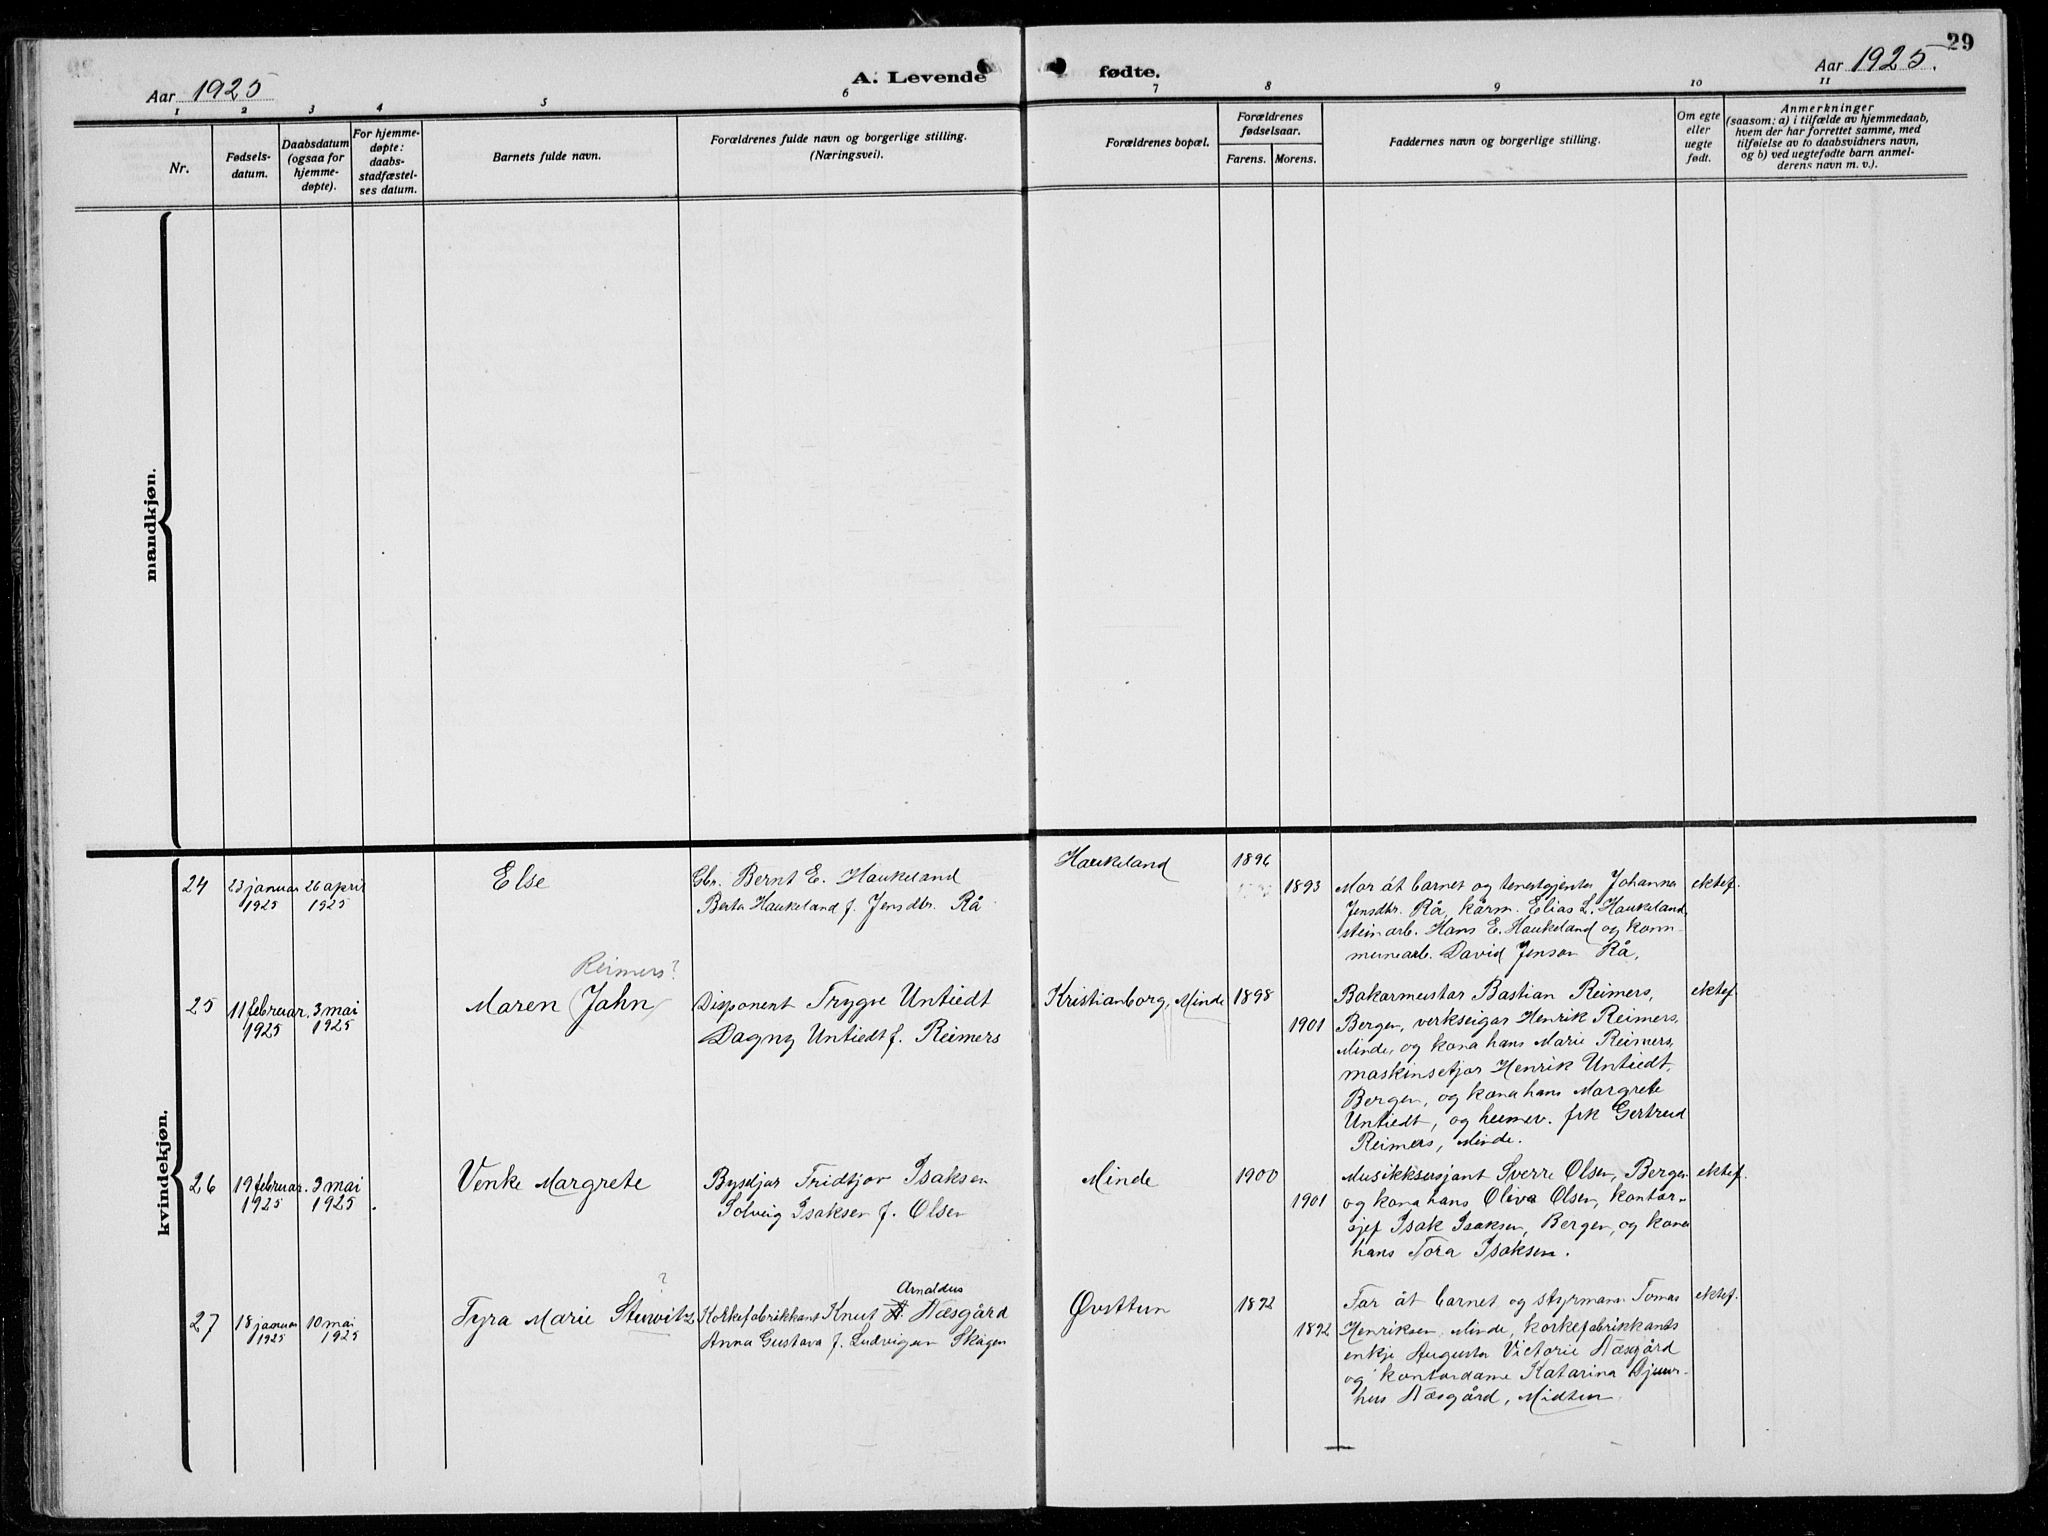 Aar 1925
A. Levende
fødte.
Aar 1925.
29
1 2 3 4 5 6 7 8 9 10 11
Nr.
Fødsels-
datum.
Daabsdatum
(ogsaa for
hjemme-
døpte).
For hjemme-
døpte:
daabs-
stadfæstel-
ses datum.
Barnets fulde navn.
Forældrenes fulde navn og borgerlige stilling.
(Næringsvei).
Forældrenes bopæl.
Forældrenes
fødselsaar.
Farens. Morens.
Faddernes navn og borgerlige stilling.
Om egte
eller
uegte
født.
Anmerkninger
(saasom: a) i tilfælde av hjemmedaab,
hvem der har forrettet samme, med
tilføielse av to daabsvidners navn,
og b) ved uegtefødte barn anmel-
derens navn m. v.).
mandkjøn.
kvindekjøn.
24
23 januar
1925
26 april
1925
Else
Gbr. Bernt E. Haukeland
Berta Haukeland f. Jensdtr. Rå
Haukeland
1896
1893
Mor åt barnet og tenestgjenta Johanna
Jensdtr. Rå, kårm. Elias L. Haukeland,
steinarb. Hans E. Haukeland og kom-
munearb. David Jenson Rå.
ektef.
25
11 februar
1925
3 mai
1925
Reimers?
Maren (Jahn)
Disponent Trygve Untiedt
Dagny Untiedt f. Reimers
Kristianborg, Minde
1898
1901
Bakarmeistar Bastian Reimers,
Bergen, verkseigar Henrik Reimers,
Minde, og kona hans Marie Reimers,
maskinsetjar Henrik Untiedt,
Bergen, og kona hans Margrete
Untiedt, og heimev. frk Gertrud
Reimers, Minde.
ektef.
26
19 februar
1925
3 mai
1925
Venke Margrete
Fridtjov Isaksen
Solveig Isaksen f. Olsen
Minde
1900
1901
Musikksersjant Sverre Olsen, Bergen
og kona hans Oliva Olsen, kontor-
sjef Isak Isaksen, Bergen, og kona
hans Tora Isaksen.
ektef.
27
18 januar
1925
10 mai
1925
?
Tyra Marie
Arnoldus
Korkefabrikkant Knut Næsgård
Anna Gustava f. Ludvigsen Skagen
Øvsttun
1892
1892
Far åt barnet og styrmann Tomas
Henriksen, Minde, korkefabrikkants
enkje Augusta Victorie Næsgård
og kontordame Katarina Djuur-
hus Næsgård, Midtun.
ektef.